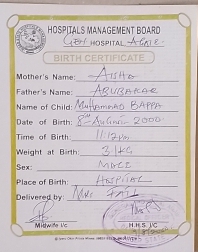 HOSPITALS MANAGEMENT BOARD
GEN HOSPITAL AGAIE
BIRTH CERTIFICATE
Mother's Name: AISHA
Father's Name: ABUBAKAR
Name of Child: Muhammad BAPPA
Date of Birth: 8th August 2000
Time of Birth: 11:12
Weight at Birth: 3 KG
Sex: MALE
Place of Birth: HOSPITAL
Delivered by:
Midwife i/c H.H.S. i/c